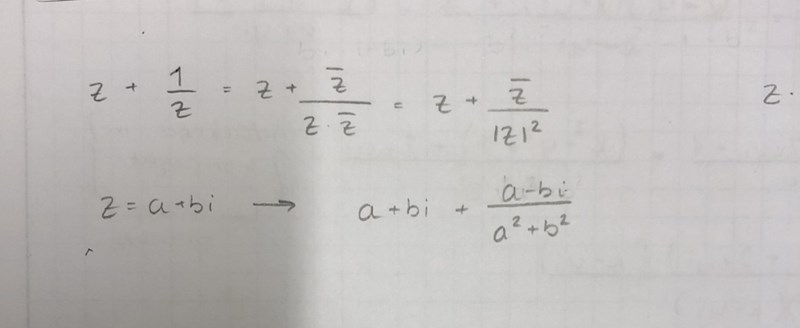 z + 1/z = z + z̄/(z · z̄) = z + z̄/|z|² z·
z = a+bi → a+bi + (a-bi)/(a²+b²)